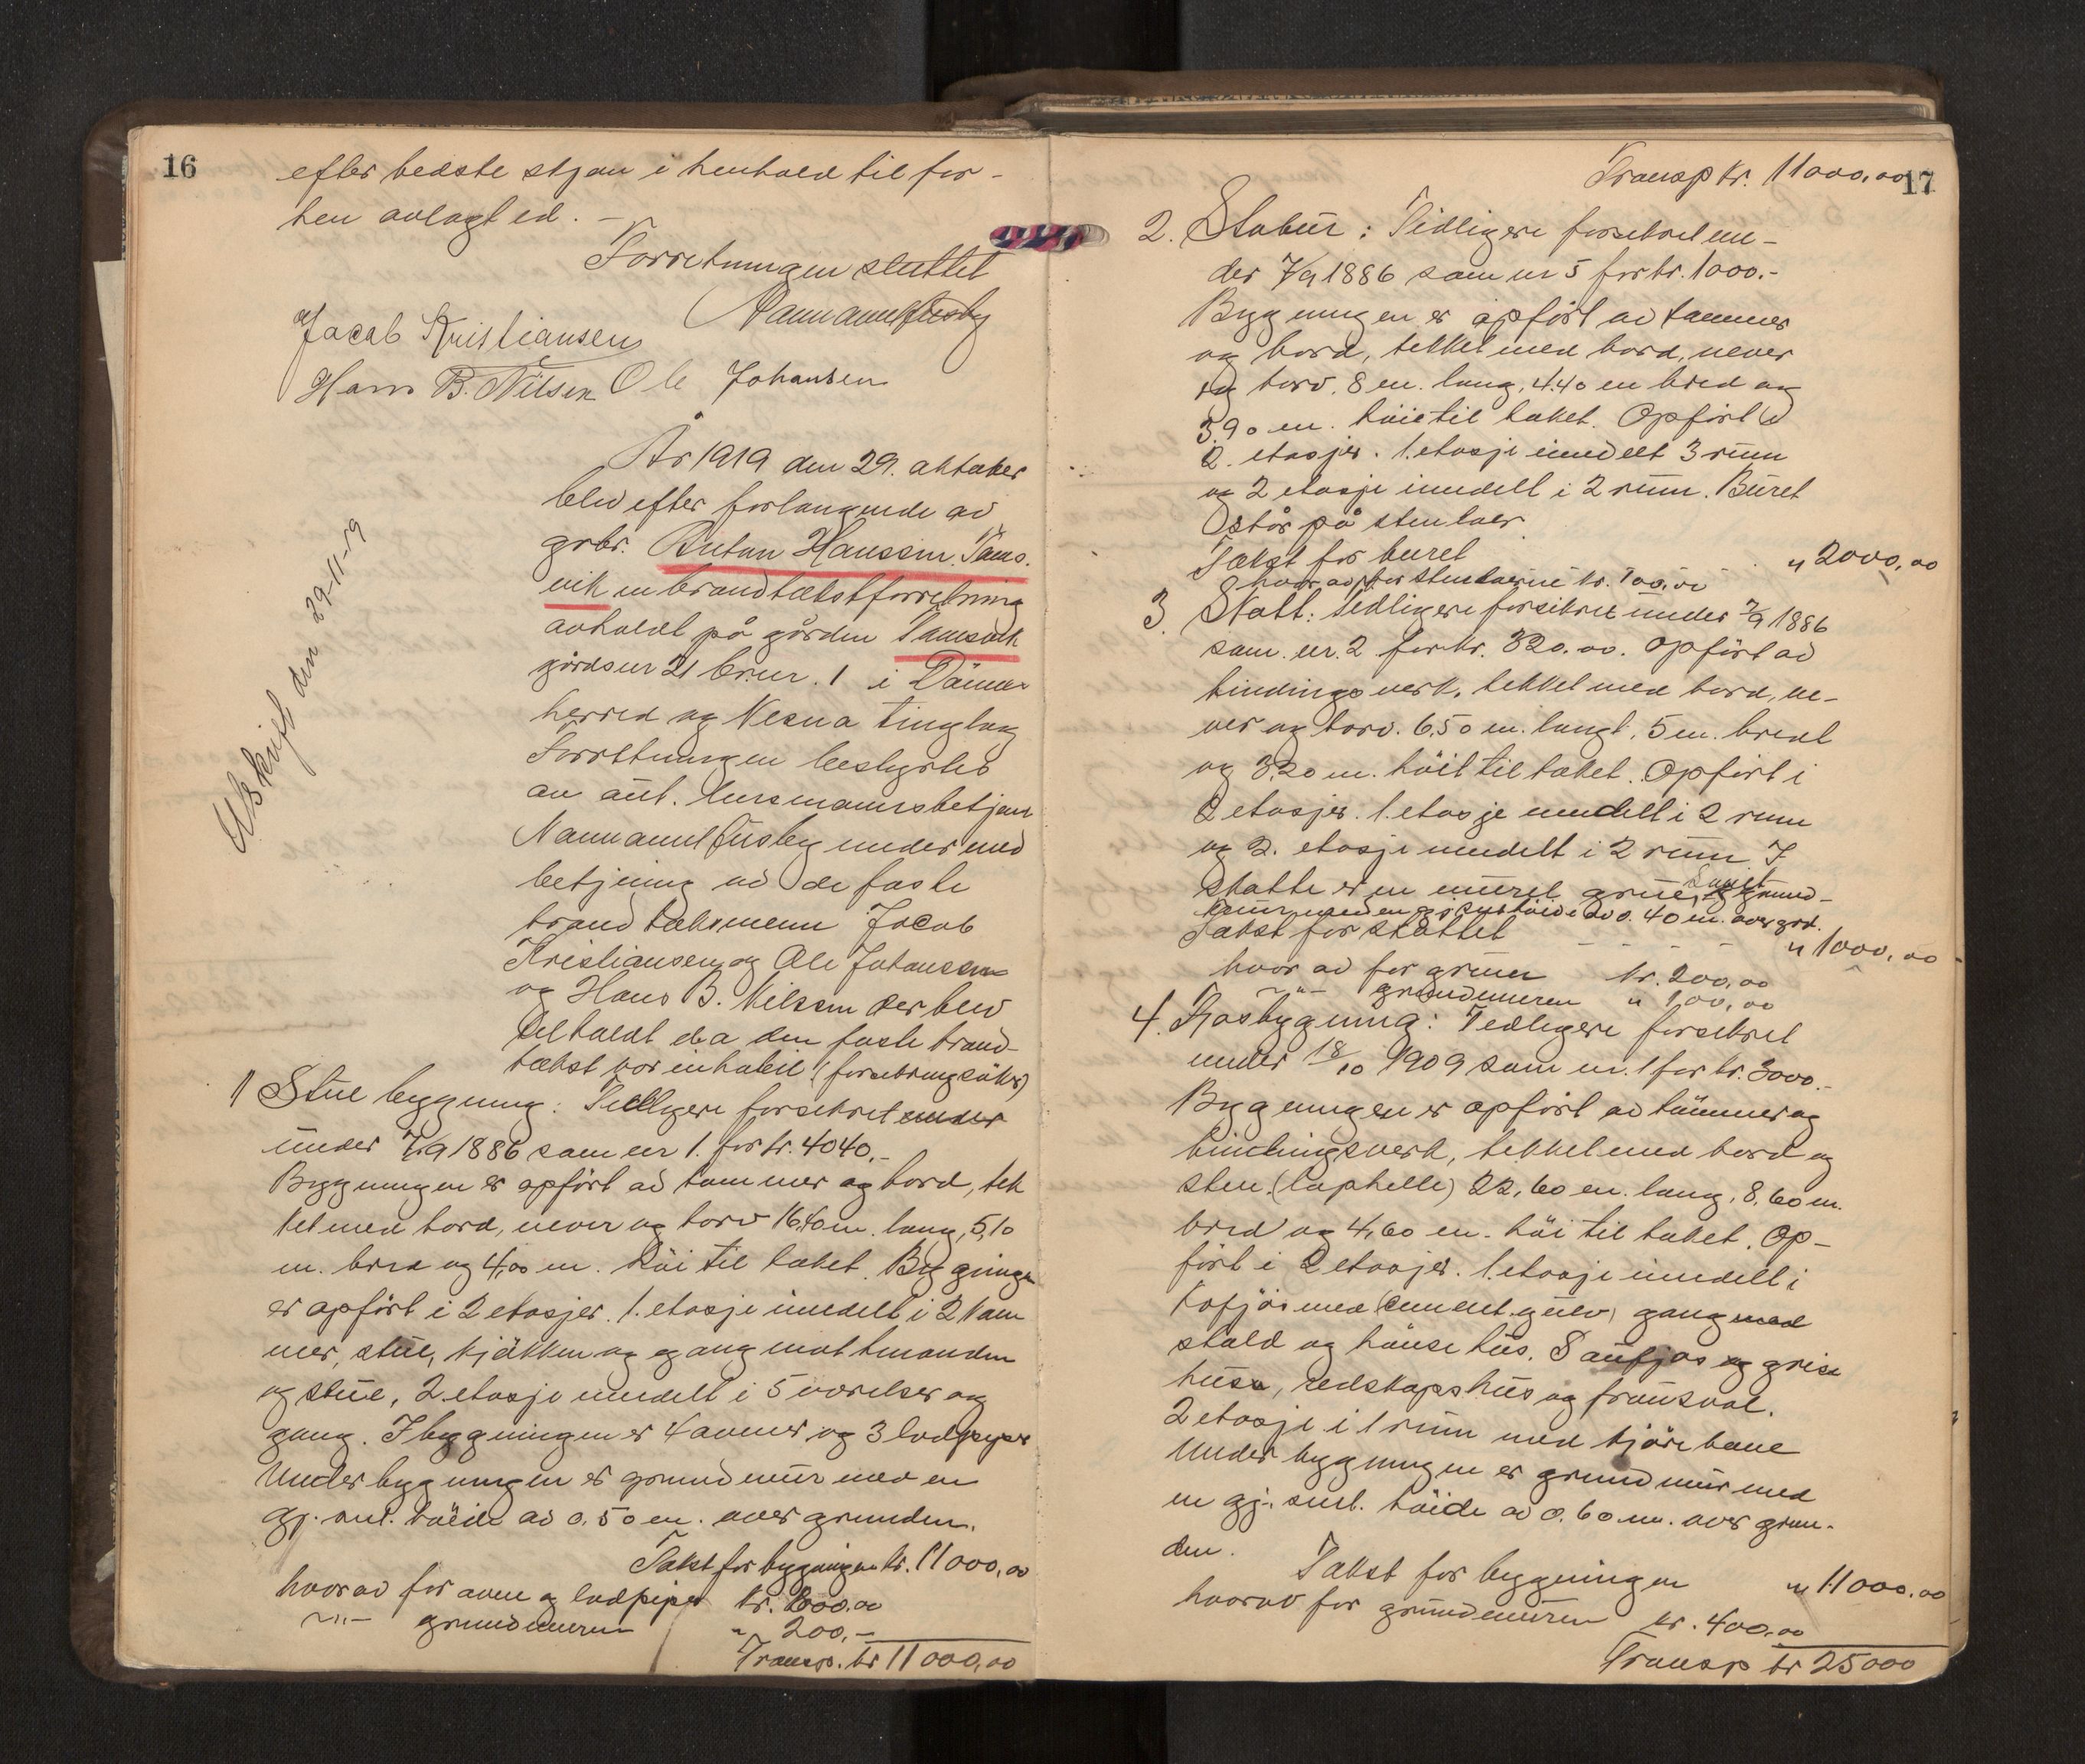 16
efter bedste skjøn i henhold til for-
hen avlagt ed. -
Forretningen sluttet
Jacob Kristiansen
Hans B. Nilsen Ole Johansen
År 1919 den 29. oktober
blev efter forlangende av
grbr. Anton Hanssen. Tams.
vik en brandtakstforretning
avholdt på gården Tamsvik
gårdsnr 21 br.nr. 1 i Dønnes
herred og Nesna tinglag
Forretningen bestyrtes
av aut. lensmannsbetjent
under med
betjening av de faste
brandtakstmenn Jacob
Kristiansen og Ole Johansen
og Hans B. Nilssen der blev
tilkaldt da den faste brand-
takst var inhabil (forsikringsøker)
Avskrift den 29-11-19
1 Stuebygning: Tidligere forsikret under
under 7/9 1886 som nr 1. for kr. 4040.-
Bygningen er opført av tømmer og bord, tek
ket med bord, never og torv 16,40 m. lang, 5,10
m. bred og 4,00 m. høi til taket. Bygningen
er opført i 2 etasjer. 1. etasje inndelt i 2 kam
mer, stue, kjøkken og gang mot
og stue, 2 etasje inndelt i 5 værelser og
gang. I bygningen er 4 ovner og 3 lodpiper
Under bygningen er grundmur med en
gj. snl. høide av 0,50 m. over grunden.
Takst for bygningen kr. 11000,00
hvorav for ovne og lodpiper kr. 1000.00
-"- grundmuren " 200,-
Transp. kr 11000,00
17
Transp kr. 11000,00
2. Stabur: Tidligere forsikret un-
der 7/9 1886 som nr 5 for kr. 1000.-
Bygningen er opført av tømmer
og bord, tekket med bord, never
og torv, 8 m. lang, 4.40 m bred og
3,90 m. høi til taket. Opført i
2. etasjer. 1. etasje inndelt 3 rum
og 2 etasje inndelt i 2 rum. Buret
står på stenloer
Takst for buret " 2000,00
hvorav for stenloerne kr. 100,00
3. Stall: tidligere forsikret under 7/9 1886
som nr. 2 for kr. 320.00. Opført av
bindingsverk, tekket med bord, ne-
ver og torv. 6,50 m. langt, 5 m. bredt
og 3,20 m. høit til taket. Opført i
2 etasjer. 1. etasje inndelt i 2 rum
og 2. etasje inndelt i 2 rum. I
er en muret grue, grund-
mur med en gj. snl. høide av 0.40 m. over grd.
Takst for - - - - " 1000,00
hvorav for gruen kr. 200,00
-"- grundmuren " 100,00
4. Fjøsbygning: Tidligere forsikret
under 18/10 1909 som nr. 1 for kr. 3000.-
Bygningen er opført av tømmer og
bindingsverk, tekket med bord og
sten (laphelle) 22,60 m. lang, 8,60 m.
bred og 4,60 m. høi til taket. Op-
ført i 2 etasjer. 1. etasje inndelt i
kofjøs med (cement gulv) gang med
stald og hønsehus. Saufjøs og grise
huse, redskapshus og
2 etasje i 1 rum med kjørebane
Under bygningen er grundmur med
en gj. snl. høide av 0.60 m. over grun-
den.
Takst for bygningen " 11000,00
hvorav for grundmuren kr. 400,00
Transp kr 25000